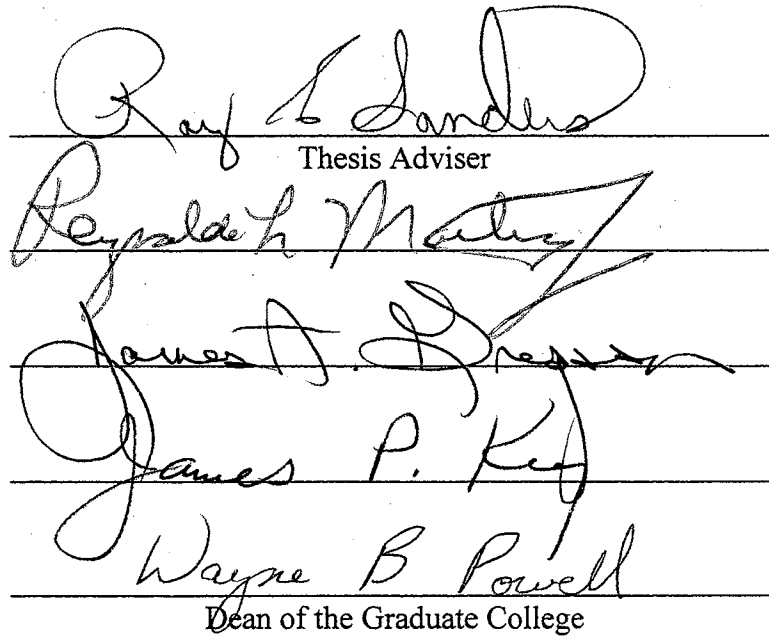 Ray E Sanders
Thesis Adviser
Reynaldo L Martinez
James A. Gregson
James P. Key
Wayne B Powell
Dean of the Graduate College